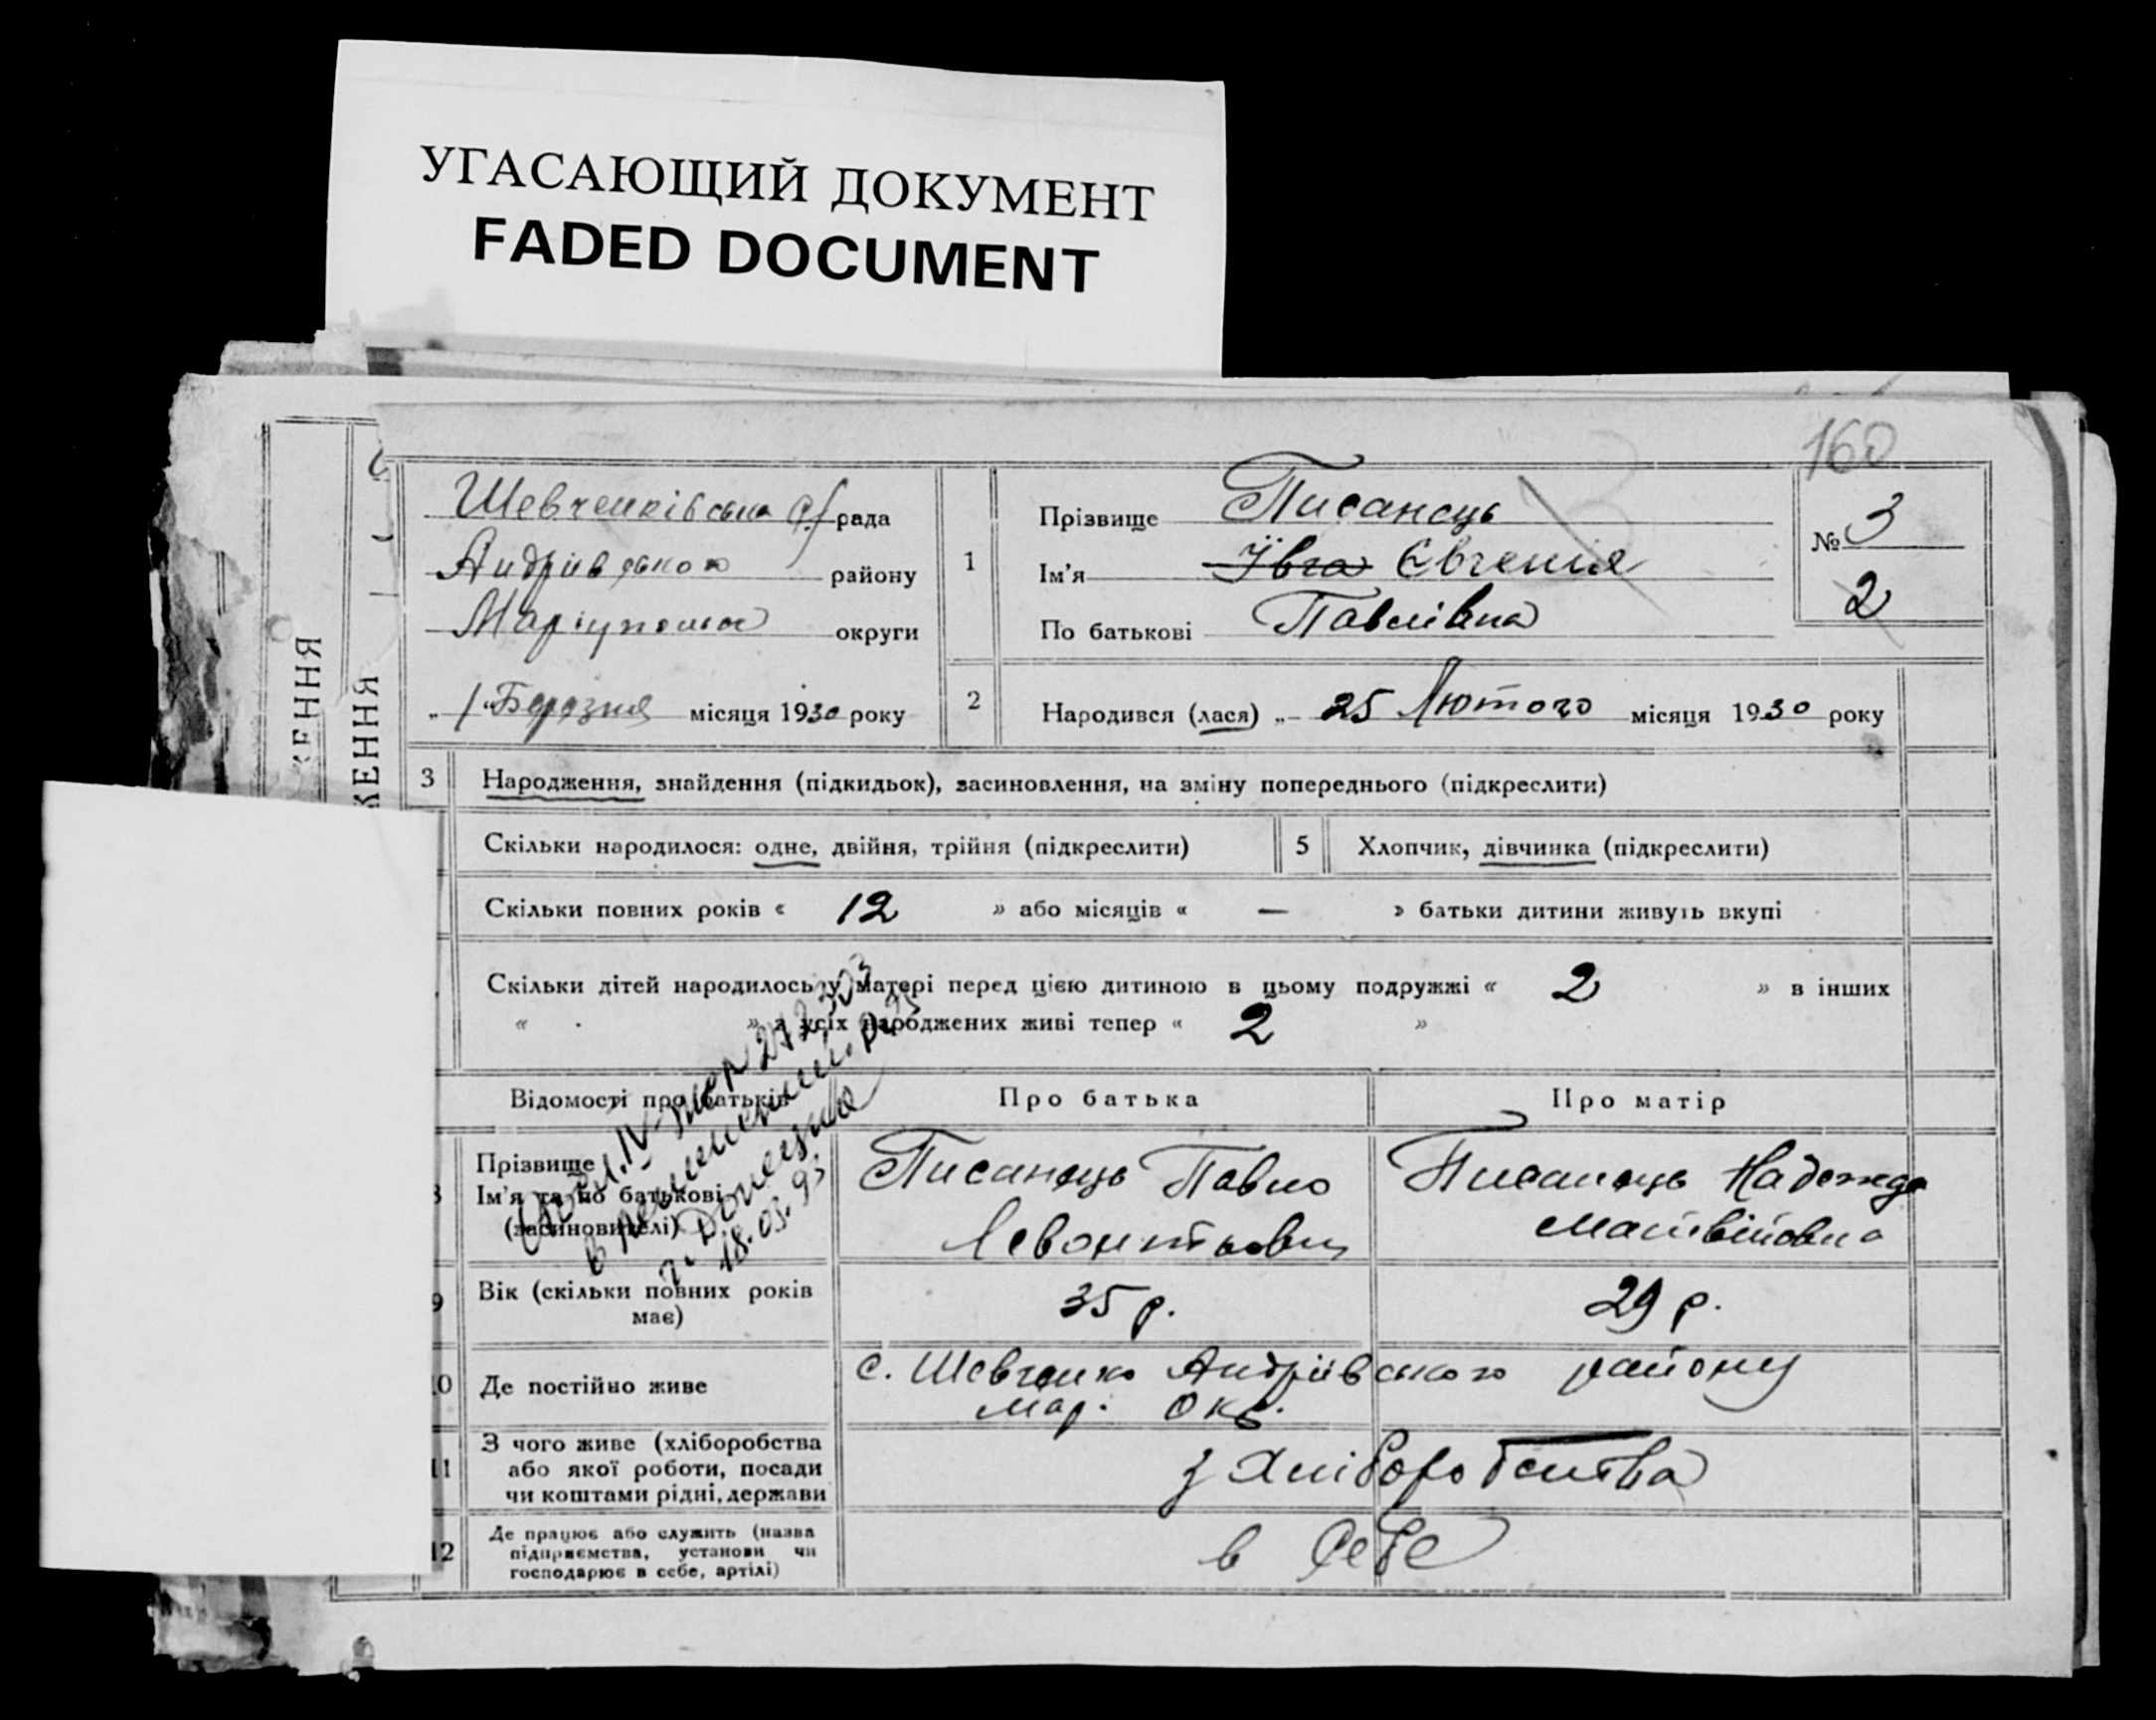 УГАСАЮЩИЙ ДОКУМЕНТ
FADED DOCUMENT
160
Шевченківська с/рада
Андріївського району
Маріупольс округи
„1" Березня місяця 1930 року
1
Прізвище Писанець
Ім'я Ївга Євгенія
По батькові Павлівна
№ 3
2
2
Народився (лася) „ 25 Лютого місяця 1930 року
ЖЕННЯ
ЖЕННЯ
3 Народження, знайдення (підкидьок), засиновлення, на зміну попереднього (підкреслити)
Скільки народилося: одне, двійня, трійня (підкреслити) 5 Хлопчик, дівчинка (підкреслити)
Скільки повних років « 12 » або місяців « — » батьки дитини живуть вкупі
Скільки дітей народилось у матері перед цією дитиною в цьому подружжі « 2 » в інших
« » з усіх народжених живі тепер « 2 »
Відомості про батьків Про батька Про матір
Прізвище
Ім'я та по батькові
(засиновителі)
Писанець Павло
Левонтьович
Писанець Надежда
Матвійовна
9 Вік (скільки повних років
має)
35 р. 29 р.
10 Де постійно живе
с. Шевченко Андріївського району
Мар. Окр.
11 З чого живе (хліборобства
або якої роботи, посади
чи коштами рідні, держави
з Хліборобства
12 Де працює або служить (назва
підприємства, установи чи
господарює в себе, артілі)
в себе
г. Донецка
18.03.93